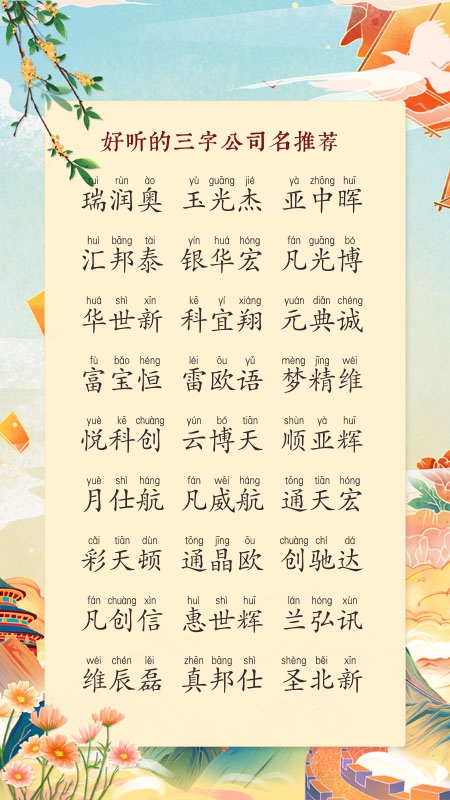 好听的三字公司名推荐
ruì rùn ào yù guāng jié yà zhōng huī
瑞润奥 玉光杰 亚中晖
huì bāng tài yín huá hóng fán guāng bó
汇邦泰 银华宏 凡光博
huá shì xīn kē yí xiáng yuán diǎn chéng
华世新 科宜翔 元典诚
fù bǎo héng léi ōu yǔ mèng jīng wéi
富宝恒 雷欧语 梦精维
yuè kē chuàng yún bó tiān shùn yà huī
悦科创 云博天 顺亚辉
yuè shì háng fán wēi háng tōng tiān hóng
月仕航 凡威航 通天宏
cǎi tiān dùn tōng jīng ōu chuàng chí dá
彩天顿 通晶欧 创驰达
fán chuàng xìn huì shì huī lán hóng xùn
凡创信 惠世辉 兰弘讯
wéi chén lěi zhēn bāng shì shèng běi xīn
维辰磊 真邦仕 圣北新